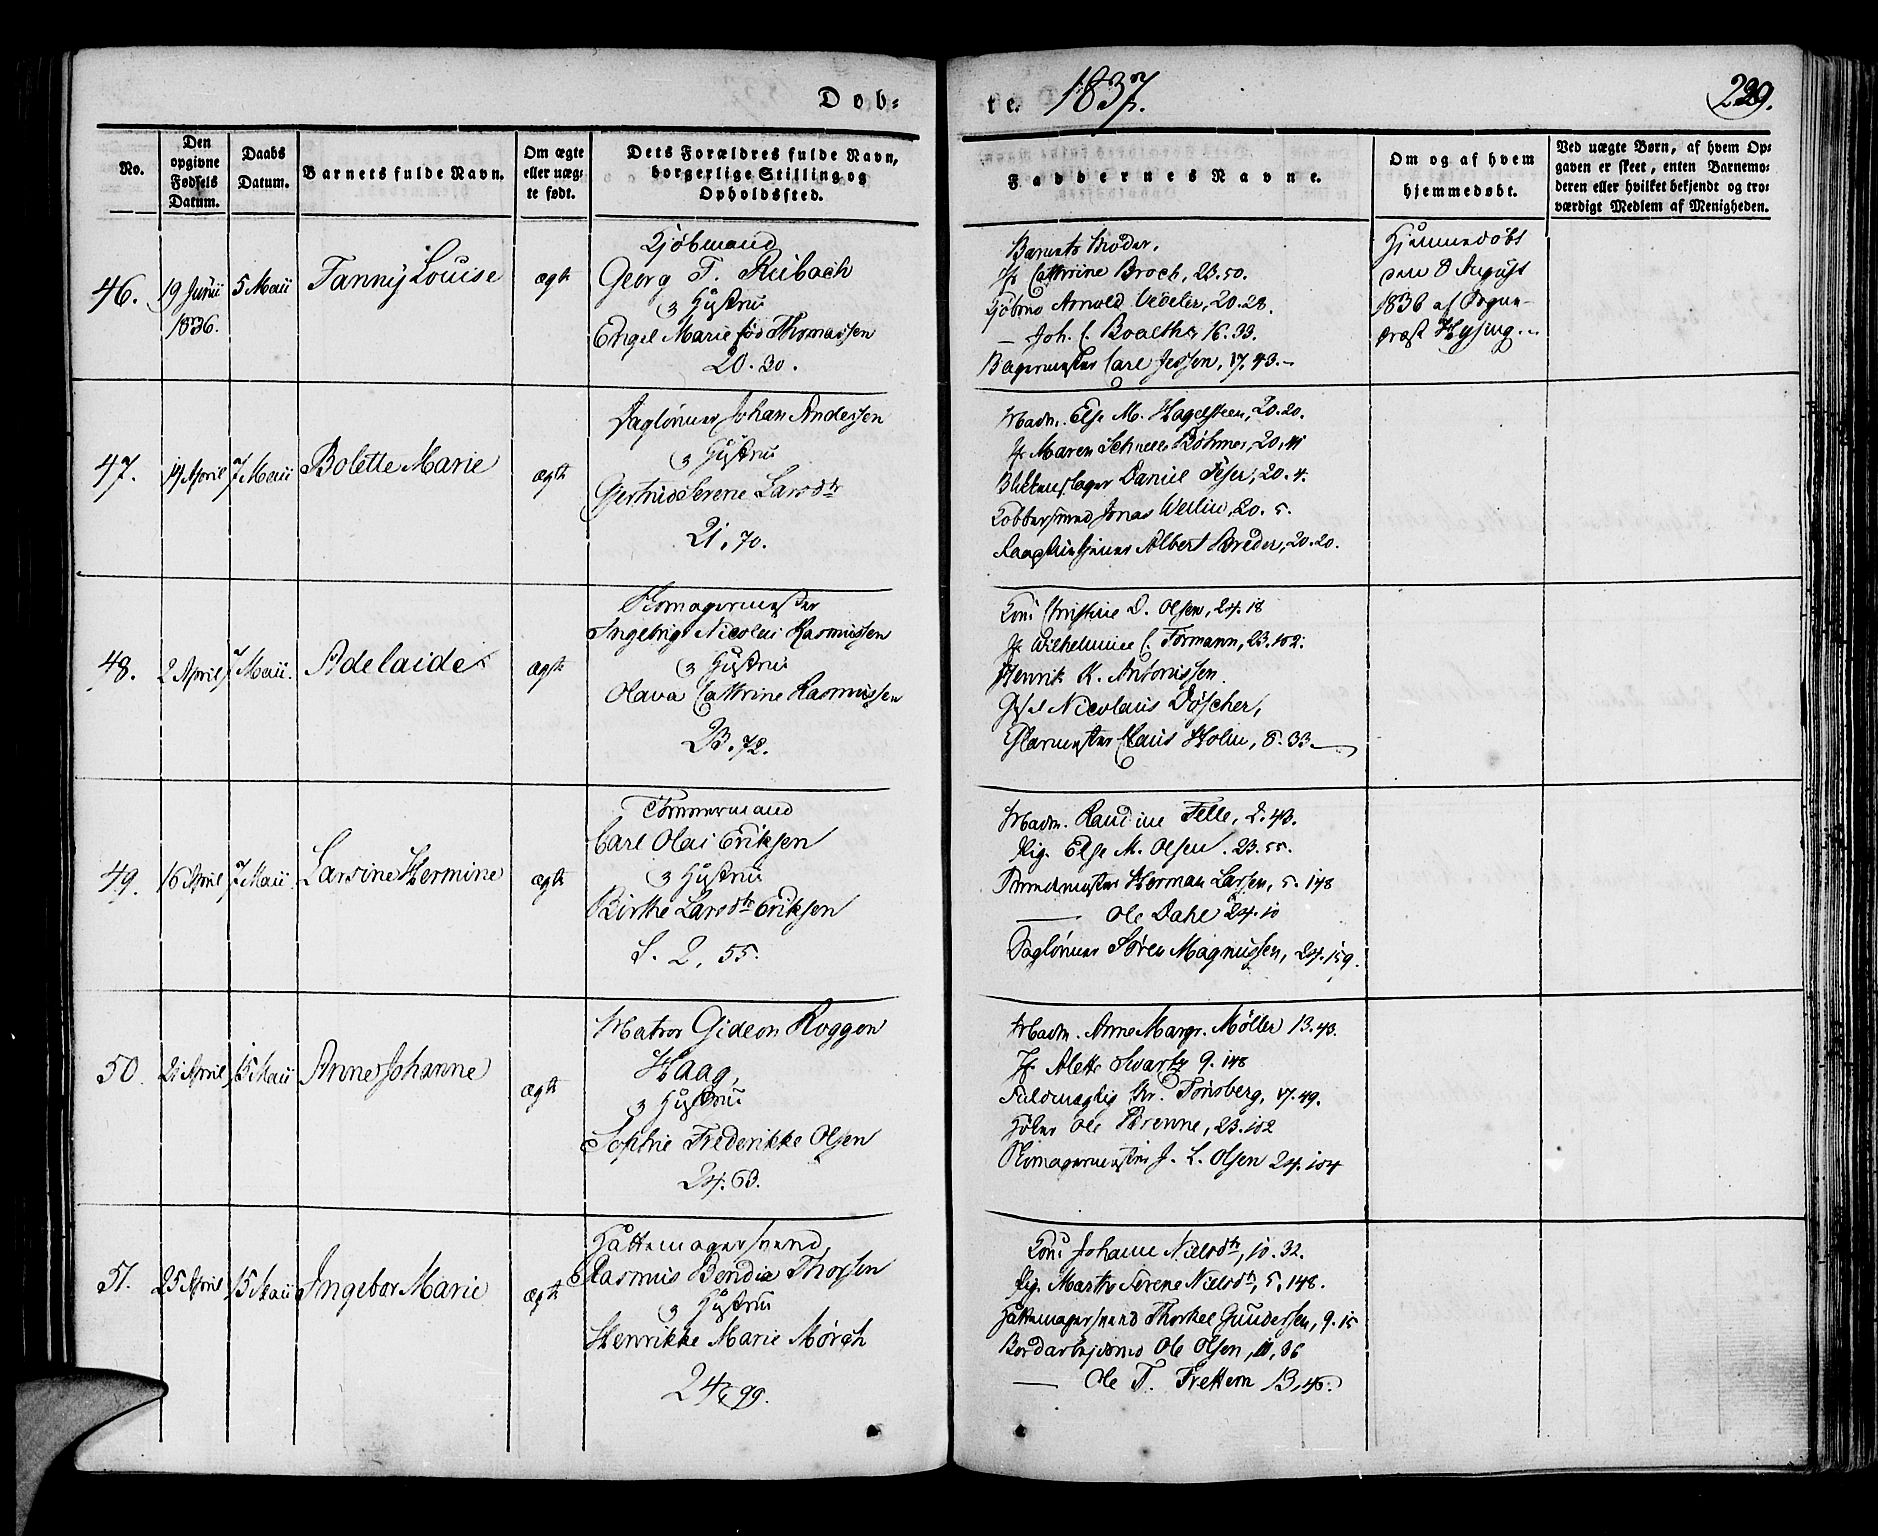 Døb-
te. 1837.
229.
No.
Den opgivne Fødsels Datum.
Daabs Datum.
Barnets fulde Navn.
Om ægte eller uægte født.
Dets Forældres fulde Navn, borgerlige Stilling og Opholdssted.
Faddernes Navne.
Om og af hvem hjemmedøbt.
Ved uægte Børn, af hvem Opgaven er skeet, enten Barnemoderen eller hvilket bekjendt og troværdigt Medlem af Menigheden.
46.
19 Junii
1836.
5 Maii
Fanny Louise
ægte
Kjøbmand
Georg F. Rubach
& Hustru
Engel Marie fød Thomassen
20.30.
Barnets Moder.
Jfr Cathrine Broch, 23.50.
Kjøbmd Arnold Vedeler, 20.28.
— Joh. C. Boalth, 16.33.
Bagermester Carl Jessen, 17.43.
Hjemmedøbt
den 8 August
1836 af Sogne-
præst Hysing.
47.
14 April
7 Maii
Bolette Marie
ægte
Dagløner Johan Andersen
& Hustru
Gjertrud Serene Larsdtr
21.70.
Madm. Else M. Hagelsteen, 20.20.
Jfr Maren Böhmer, 20.
Blikkenslager Daniel 20.4.
Kobbersmed Jonas 20.5.
Albert 20.20.
48.
2 April
7 Maii.
Adelaide
ægte
Skomagermester
Ingebrigt Nicolai Rasmussen
& Hustru
Olava Cathrine Rasmussen
23.72.
Kone Christine D. Olsen, 24.18
Jfr Wilhelmine C. Formann, 23.102.
Henrik K. Antonissen.
Nicolaus Döscher,
Glarmester Claus Holm, 8.33.
49.
16 April
7 Maii
Larsine Hermine
ægte
Tømmermand
Carl Olai Eriksen
& Hustru
Birthe Larsdtr Eriksen
S. 2, 55.
Madm. Randine Felle, 2.43.
Pig. Else M. Olsen. 23.55.
Herman Larsen, 5.148
— Ole Dahl 24.10
Dagløner Søren Magnussen, 24.159.
50.
21 April
15 Maii
Anne Johanne
ægte
Matros Gideon Roggen
Haag,
& Hustru
Sophie Frederikke Olsen
24.63.
Madm. Anne Margr. Møller 13.43.
Jfr Alette Svartz 9.148
Fuldmægtig Kr. Tønsberg, 17.49.
Ole Brenne, 23.102
Skomagermester J. L. Olsen 24.104
51.
25 April
15 Maii
Ingebor Marie
ægte
Hattemagersvend,
Rasmus Bendix Thorsen
& Hustru
Henrikke Marie Mørch
24, 99.
Kone Johanne Nielsdtr, 10.32.
Pig. Marthe Serene Nielsdtr, 5.148.
Hattemagersvend Thorkel Gundersen, 9.15
Bordarbejdsmd Ole Olsen, 11,36
— Ole T. Frettem 13,